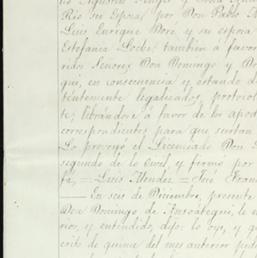 Río su Esposa, por Don Pablo
Luis Enrique Doré, y su esposa
Estefanía Locke, también a favor
ridos Señores Don Domingo y D
qui, en consecuencia y estando d
bentemente legalizados, protocol
te, librándose a favor de los apod
correspondientes para que surtan
Lo proveyó el Licenciado Don
segundo de lo Civil y firmó por
fe, = Luis Mendez = José Fran
En seis de Diciembre, presente
Don Domingo de Ansoategui, le
rior, y entendido, dijo: lo oye, y q
crito de quince del mes anterior